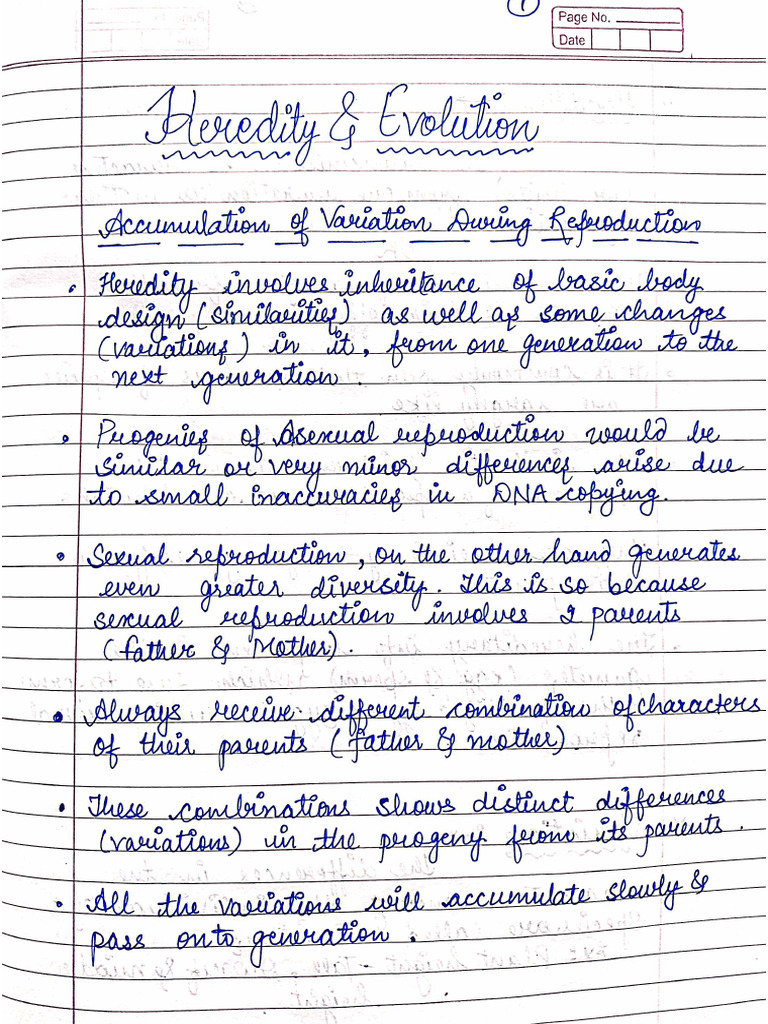 1
Page No.
Date
Heredity & Evolution
Accumulation of Variation During Reproduction
• Heredity involves inheritance of basic body
design (similarities) as well as some changes
(variations) in it, from one generation to the
next generation.
• Progenies of Asexual reproduction would be
similar or very minor differences arise due
to small inaccuracies in DNA copying.
• Sexual reproduction, on the other hand generates
even greater diversity. This is so because
sexual reproduction involves 2 parents
(father & Mother).
• Always receive different combination of characters
of their parents (father & mother)
• These combinations shows distinct differences
(variations) in the progeny from its parents.
• All the variations will accumulate slowly &
pass onto generation.